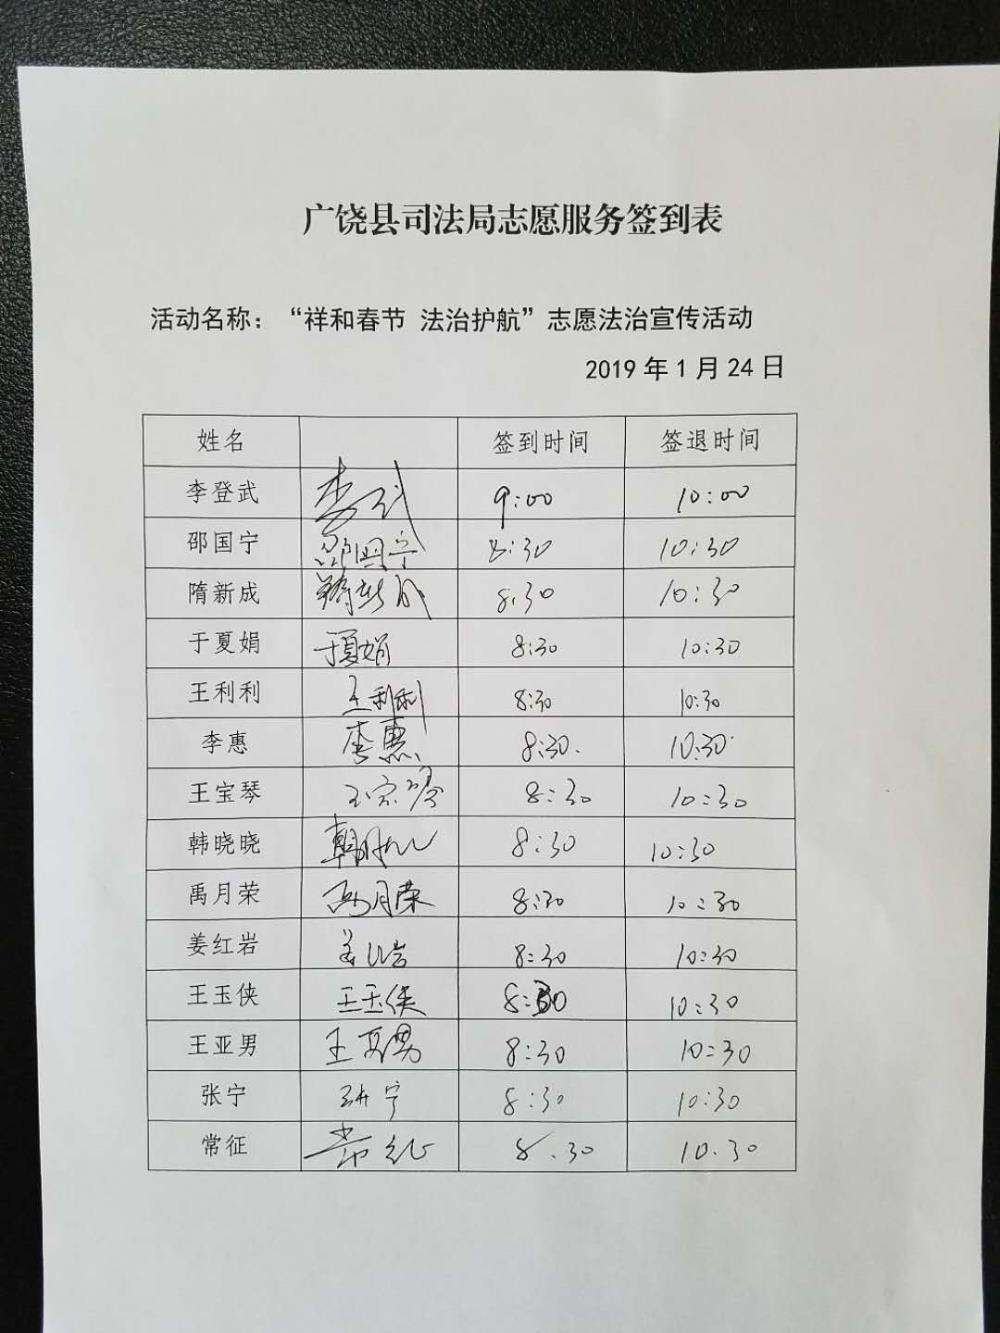 广饶县司法局志愿服务签到表
活动名称：“祥和春节 法治护航”志愿法治宣传活动
2019年1月24日
姓名 签到时间 签退时间
李登武 李武 9:00 10:00
邵国宁 邵国宁 8:30 10:30
隋新成 隋新成 8:30 10:30
于夏娟 于夏娟 8:30 10:30
王利利 王利利 8:30 10:30
李惠 李惠 8:30. 10:30
王宝琴 王宝琴 8:30 10:30
韩晓晓 8:30 10:30
禹月荣 禹月荣 8:30 10:30
姜红岩 姜红岩 8:30 10:30
王玉侠 王玉侠 8:30 10:30
王亚男 王亚男 8:30 10:30
张宁 张宁 8:30 10:30
常征 常征 8.30 10.30